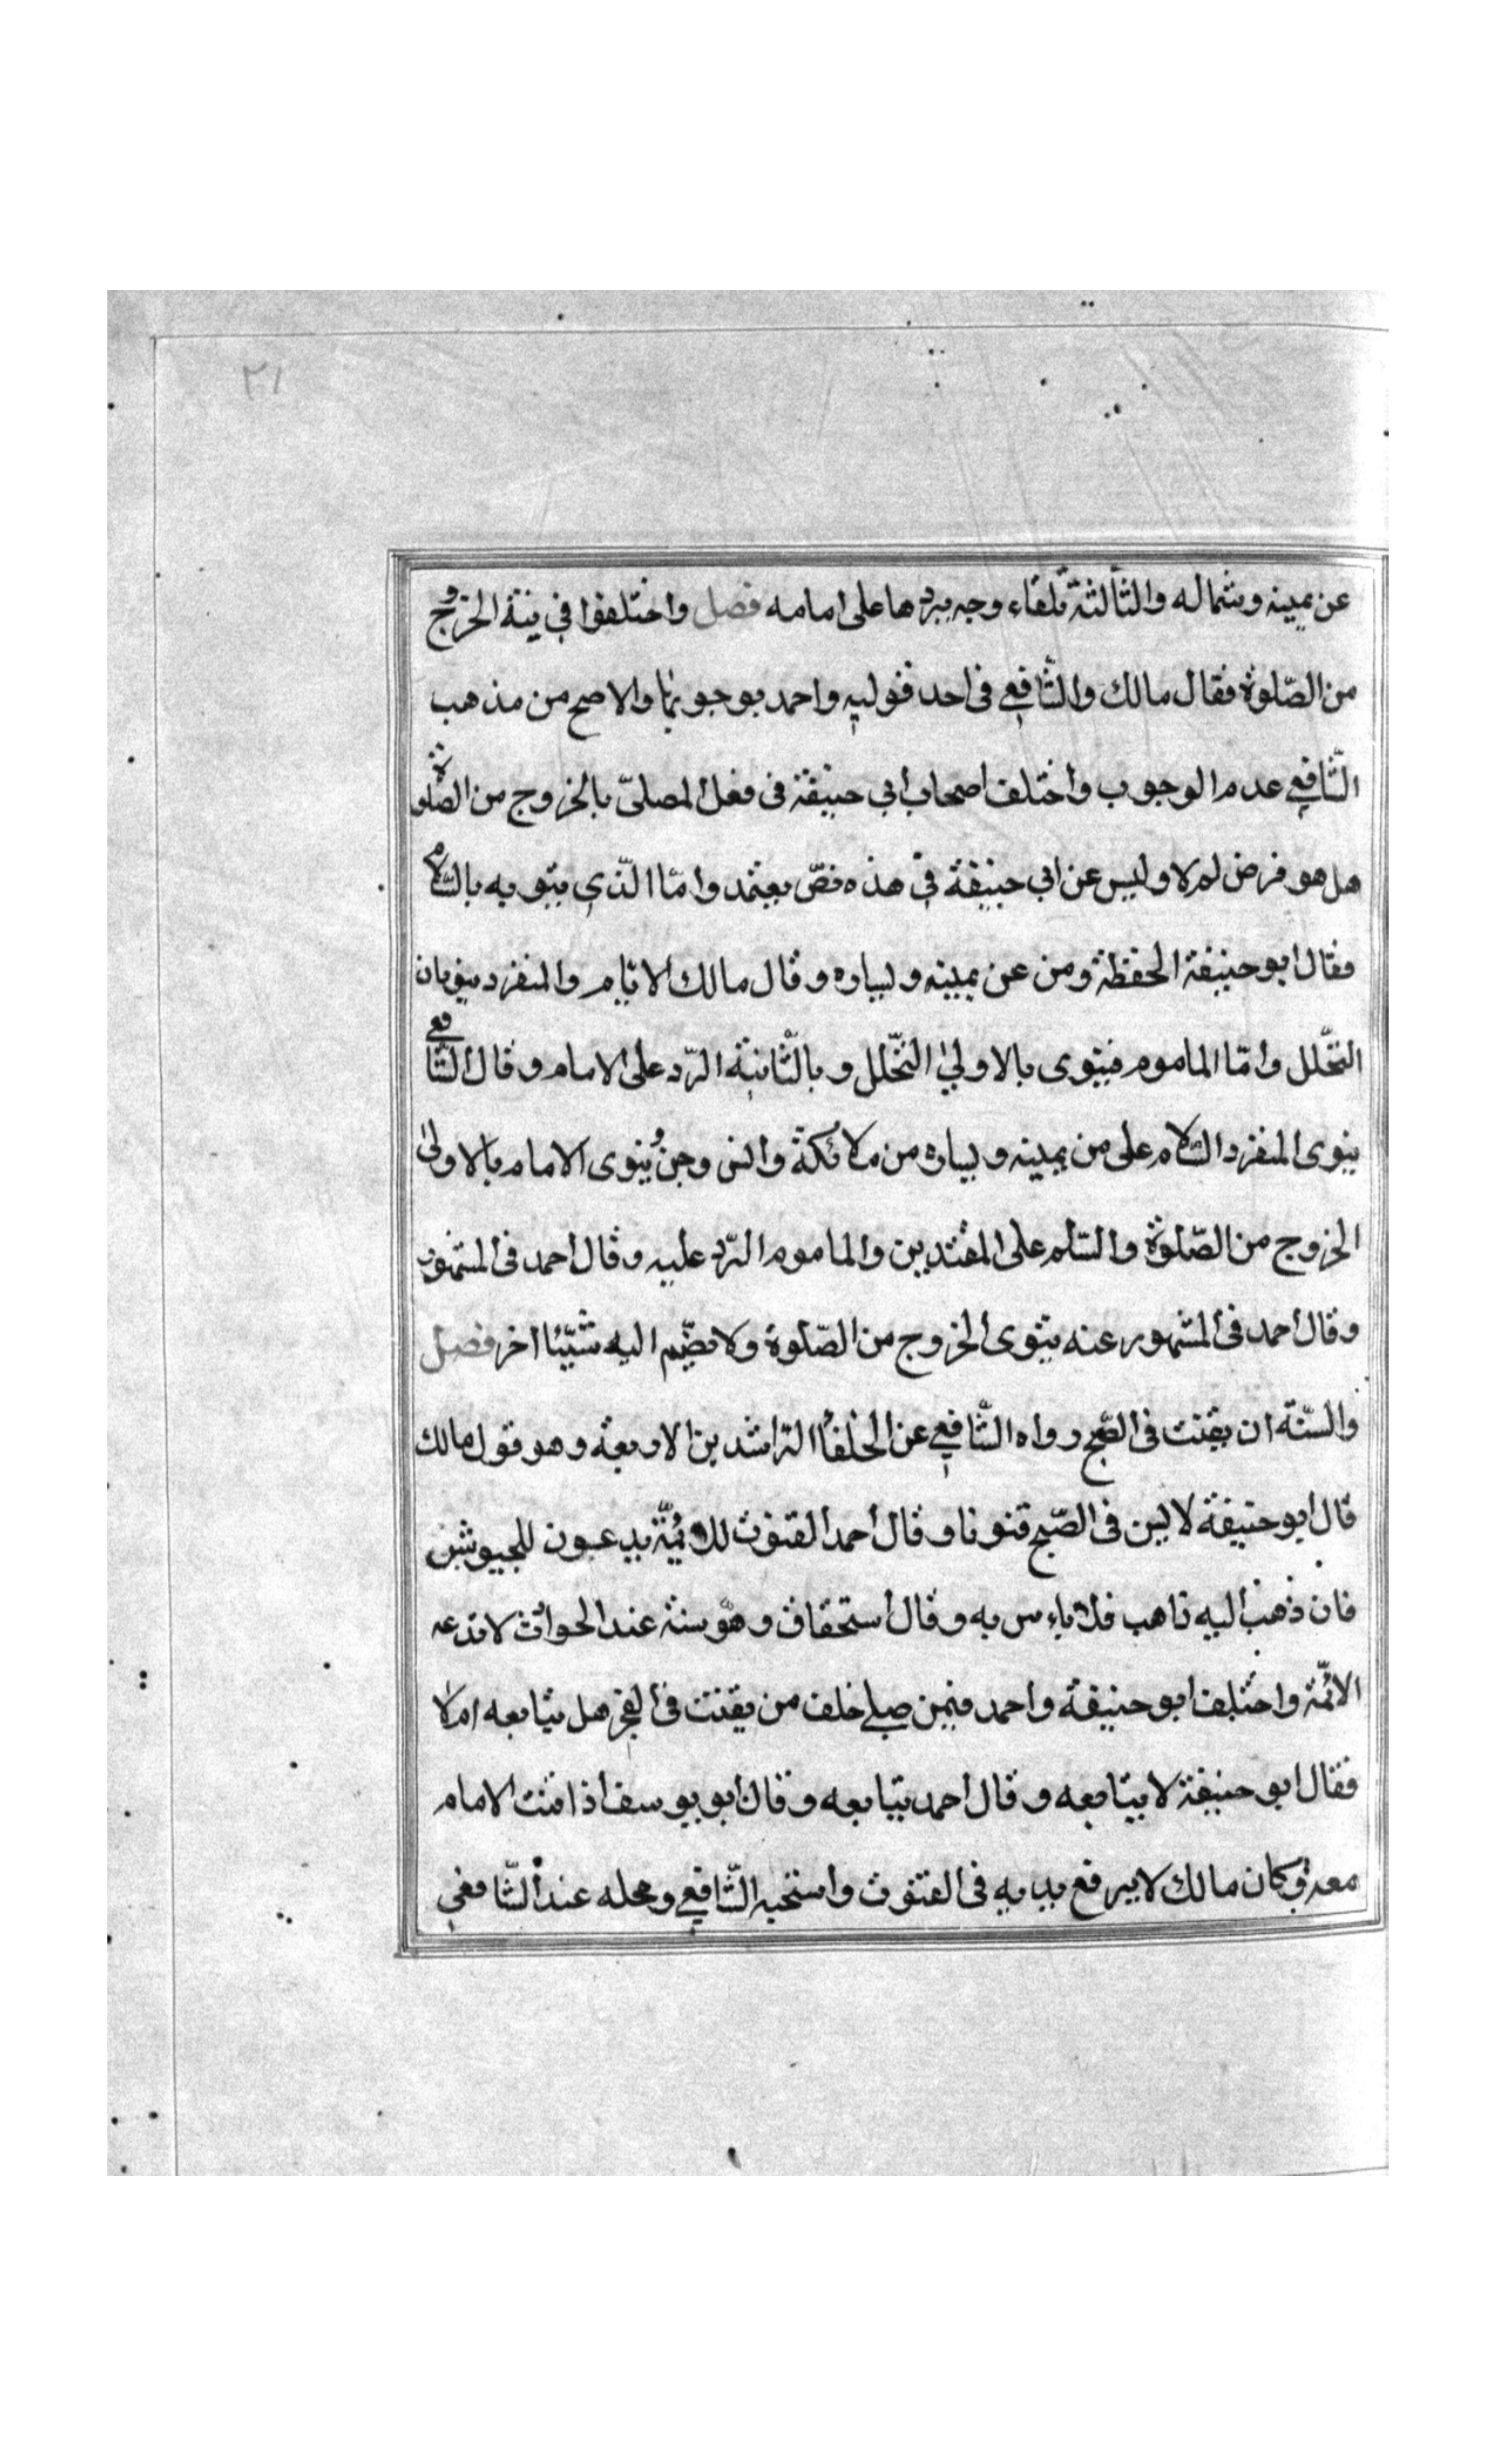 ٢١
عن يمينه وشماله والثالثة تلقاء وجه يردها على امامه فصل واختلفوا في نية الخروج
من الصّلوة فقال مالك والشّافعي في احد قوليه واحمد بوجوبها والاصح من مذهب
الشّافعي عدم الوجوب واختلف اصحاب ابي حنيفة في فعل المصلّي بالخروج من الصّلوة
هل هو فرض لم لا وليس عن ابي حنيفة في هذه نصّ يعتمد وامّا الّذي ينوي به بالسّلام
فقال ابو حنيفة الحفظة ومن عن يمينه ويساره وقال مالك الامام والمنفرد ينويان
التحّلل وامّا الماموم فينوي بالاولى التحّلل وبالثّانية الرّد على الامام وقال الشّافعي
ينوي المنفرد السّلام على من يمينه ويساره من ملائكة وانس وجن وينوي الامام بالاولى
الخروج من الصّلوة والسّلم على المقتديين والماموم الرّد عليه وقال احمد في المشهور
وقال احمد في المشهور عنه ينوي الخروج من الصّلوة ولا يضّم اليه شيئا اخر فصل
والسّنّة ان يقنت في الصّبح رواه الشّافعي عن الخلفا الرّاشدين الاربعة وهو قول مالك
قال ابو حنيفة لا ليس في الصّبح قنوتا وقال احمد القنوت للائمّة يدعون للجيوش
فان ذهب اليه ذاهب فلا باءس به وقال استحقاق وهو سنة عند الحوادث لا تدعه
الائمّة واختلف ابو حنيفة واحمد فيمن صلي خلف من يقنت في الفجر هل يتابعه ام لا
فقال ابو حنيفة لا يتابعه وقال احمد يتابعه وقال ابو يوسف اذا قنت الامام
معه وكان مالك لا يرفع يديه في القنوت واستحبه الشّافعي ومحله عند الشّافعي